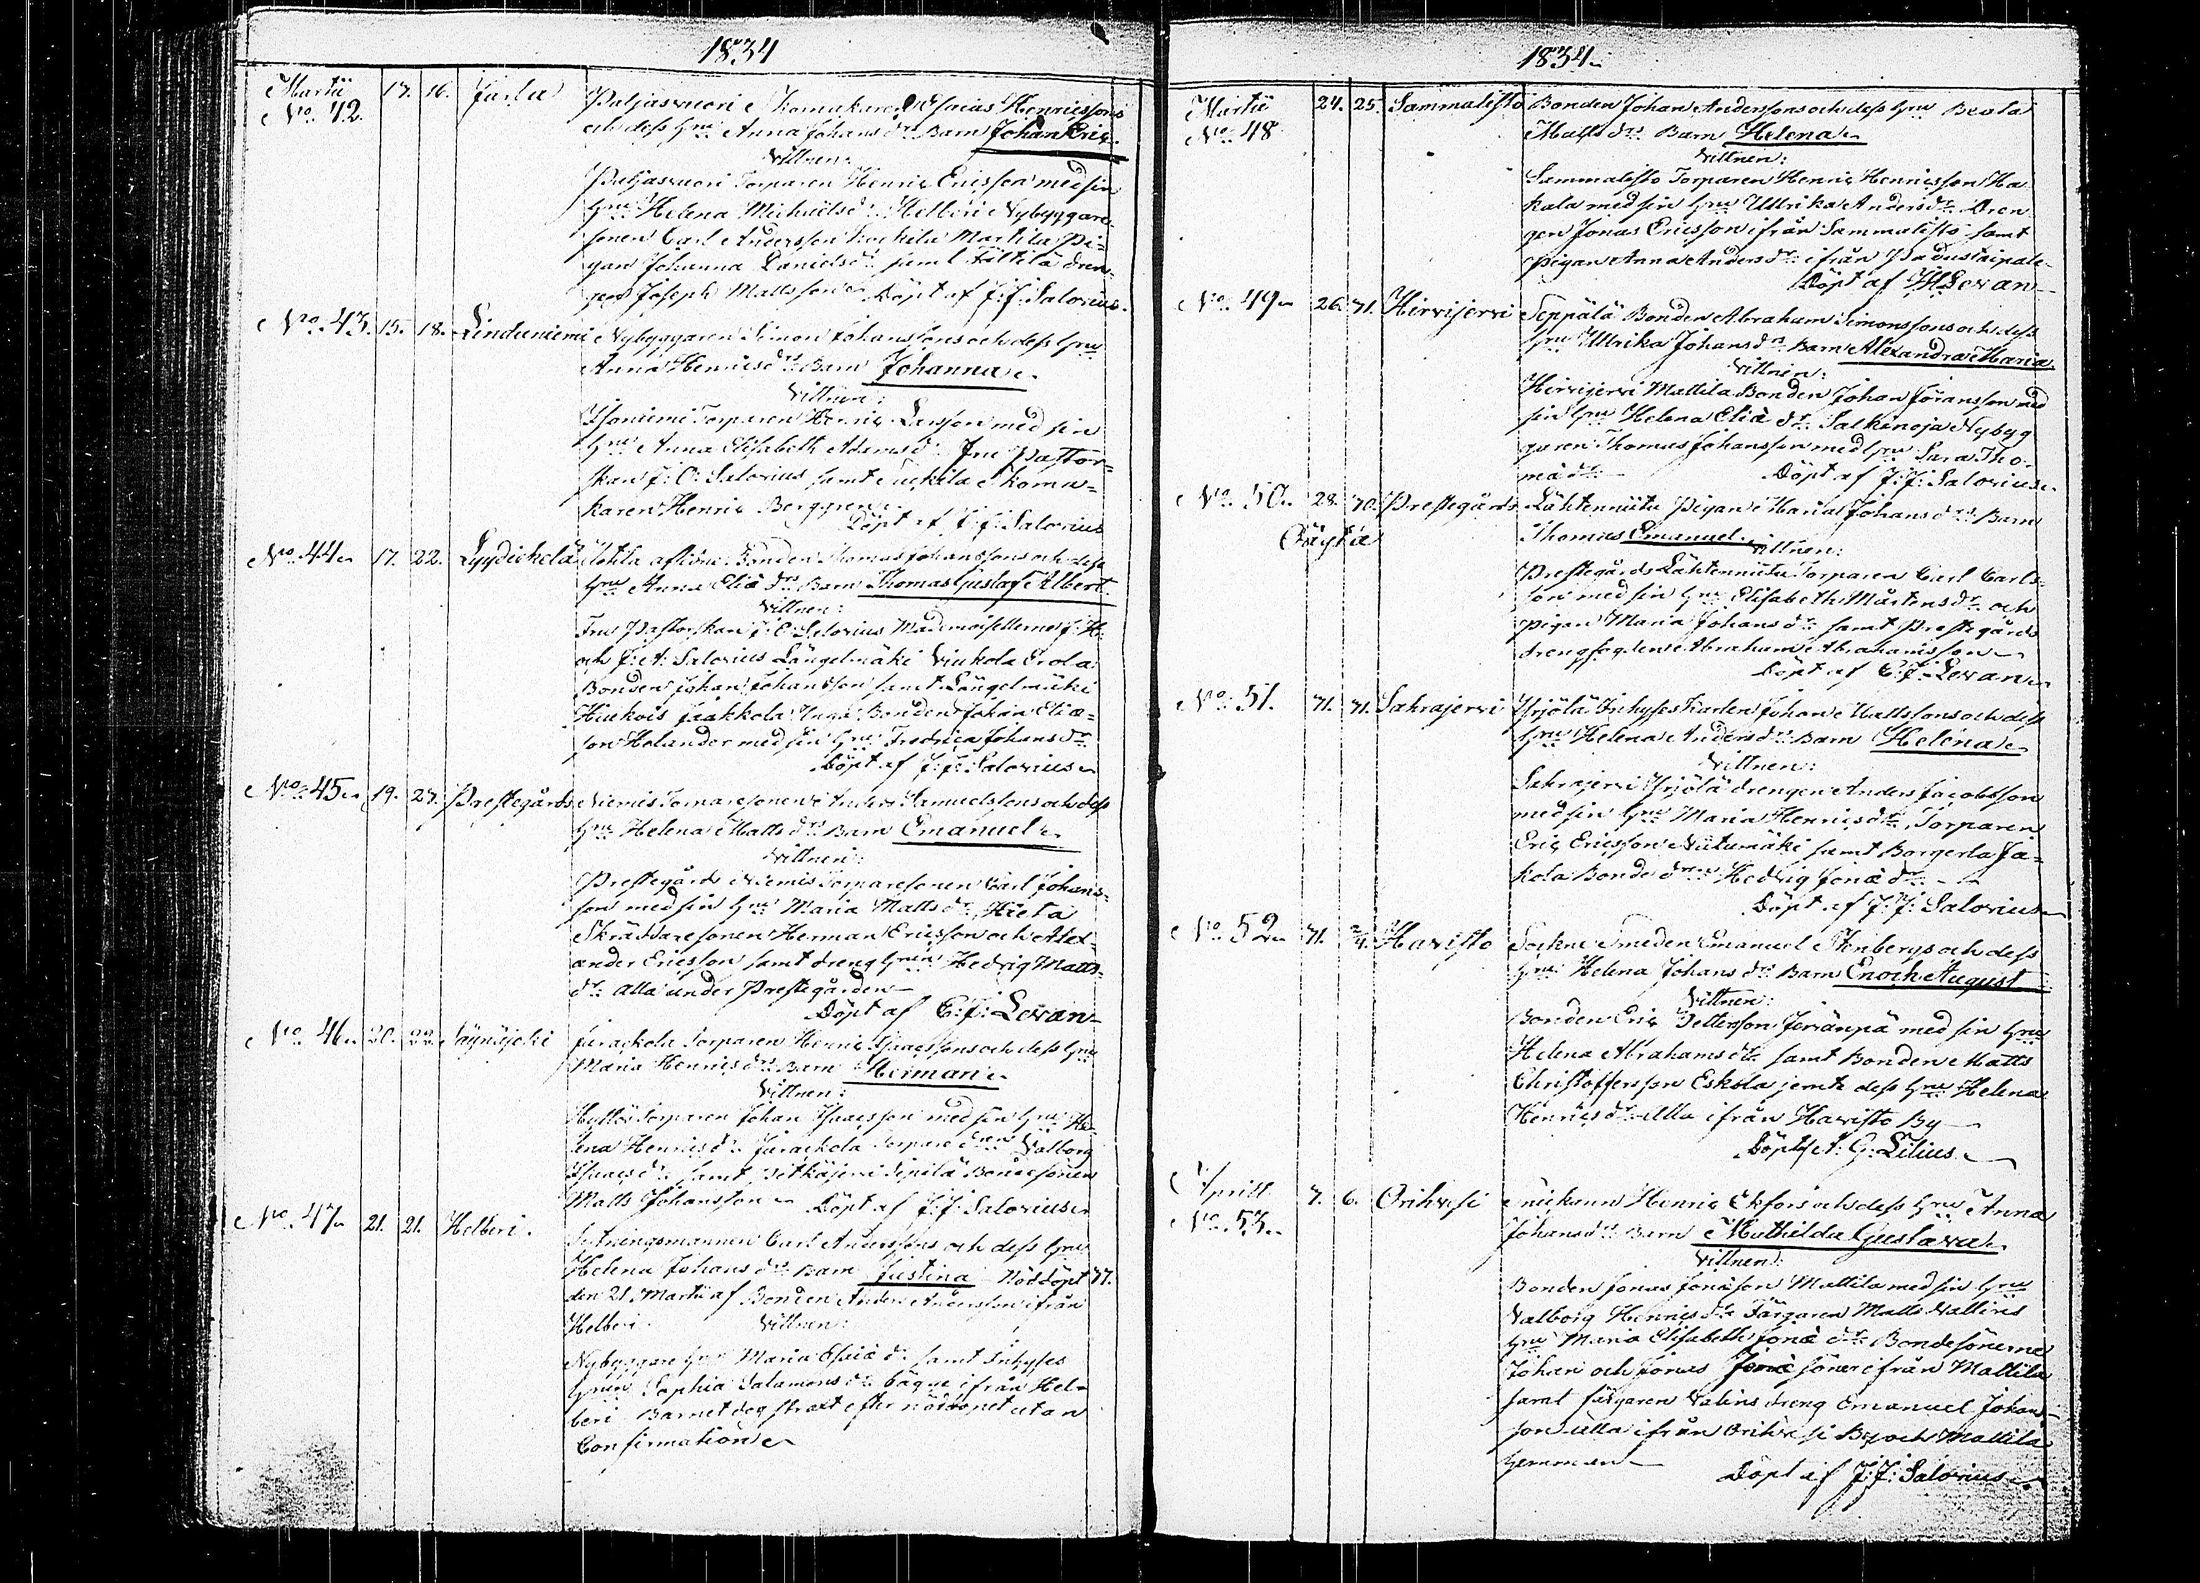 1834
Martii 17. 16. Jarla Paljasvuori Skomakaren Esaias Henricssons
No. 42. och dess Hru Anna Johansdr Barn Johan Eric.
Vittnen:
Paljasvuori Torparen Henric Ericsson med sin
Hru Helena Michaelsdr Helberi Nybyggare-
sonen Carl Andersson Martila Pi-
gan Johanna Danielsdr samt dren-
gen Joseph Mattsson Döpt af J: J: Salovius.
No. 43. 15. 18. Linduniemi Nybyggaren Simon Johanssons och dess Hru
Anna Henricsdrs Barn Johanna.
Vittnen:
Isoniemi Torparen Henric Larsson med sin
Hru Anna Elisabeth Adamsdr Fru Pastor-
skan J: C: Salovius samt Skoma-
karen Henric Berggren.
Döpt af J: J: Salovius
No. 44. 17. 22. Lyydickelä Bonden Thomas Johanssons och dess
Hru Anna Eliædrs Barn Thomas Gustaf Albert.
Vittnen:
Fru Pastorskan J: C: Salovius Mademoisellerne J: H:
och J: A: Salovius Längelmäki Vinkola Erola
Bonden Johan Johansson samt Längelmäki
Hiukois Jaakkola Unga Bonden Johan Eliæ-
son Helander med sin Hru Fredrica Johansdr
Döpt af J: J: Salovius
No. 45. 19. 27. Prestegårds Niemis Torparesonen Anders Samuelssons och dess
Hru Helena Mattsdrs Barn Emanuel.
Vittnen:
Prestegårds Niemis Torparesonen Carl Johans-
son med sin Hru Maria Mattsdr Hieta
Skräddaresonen Herman Ericsson och Alex-
ander Ericsson samt dreng Hrun Hedvig Matts-
dr alla under Prestegården
Döpt af C: J: Levan
No. 46. 20. 22. Säynäjoki Torparen Henric Isaacssons och dess Hru
Maria Henricsdrs Barn Herman.
Vittnen:
Torparen Johan Isaacsson med sin Hru He-
lena Henricsdr Torpare drn Valborg
Isaacsdr samt Pitkäjervi Sipilä Bondesonen
Matts Johansson Döpt af J: J: Salovius.
No. 47. 21. 21. Helberi. Carl Anderssons och dess Hru
Helena Johansdrs Barn Justina Nöddöpt
den 21 Martii af Bonden Anders Andersson ifrån
Helberi. Vittnen:
Nybyggare Hrun Maria Esaiædr samt Inhyses
Hrun Sophia Salomonsdr bägge ifrån Hel-
beri Barnet dog straxt efter nöddopet utan
Confirmation
1834
Martii 24. 25. Sammalisto Bonden Johan Anderssons och dess Hru Beata
No. 48 Mattsdrs Barn Helena
Vittnen:
Sammalisto Torparen Henric Henricsson Ha-
kala med sin Hru Ullrika Andersdr Dren-
gen Jonas Ericsson ifrån Sammalisto samt
Pigan Anna Andersdr ifrån Padustaipale
Döpt af Levan
No. 49 26. 31. Hirvijervi Seppälä Bonden Abraham Simonssons och dess
Hru Ullrika Johansdrs Barn Alexandra Maria.
Vittnen:
Hirvijervi Mattila Bonden Johan Göransson med
sin Hru Helena Eliædr Salkinoja Nybyg-
garen Thomas Johansson med Hru Sara Tho-
mædr Döpt af J: J: Salovius.
No. 50. 28. 30. Prestegårds Lähtenniitu Pigan Maria Johansdrs Barn
Oägta Thomas Emanuel.
Vittnen:
Prestegårds Lähtenniitu Torparen Carl Carls-
son med sin Hru Elisabeth Mårtensdr och
Pigan Maria Johansdr samt Prestegårds
drengfogden Abraham Abrahamsson
Döpt af C: J: Levan
No. 51. 31. 31. Sahrajervi Yrjölä Inhyses Karlen Johan Mattssons och dess
Hru Helena Andersdrs Barn Helena
Vittnen:
Sahrajervi Yrjölä drengen Anders Jacobsson
med sin Hru Maria Henricsdr, Torparen
Eric Ericsson Niitumäki samt Borgerla Ja-
kola Bonde drn Hedvig Jonædr
Döpt af J: J: Salovius
No. 52 31. 2/4. Havisto Sockne Smeden Emanuel Stenbergs och dess
Hru Helena Johansdrs Barn Enoch August
Vittnen:
Bonden Eric Pettersson Jevänpä med sin Hru
Helena Abrahamsdr samt Bonden Matts
Christoffersson Eskola jemte dess Hru Helena
Henricsdr alla ifrån Havisto By
Döpt af A: G: Lilius.
Aprill 3. 6. Orihvesi Henric Ekfors och dess Hru Anna
No. 53. Johansdrs Barn Mathilda Gustava.
Vittnen:
Bonden Jonas Jonæson Mattila med sin Hru
Valborg Henricsdr Färgaren Matts Vallins
Hru Maria Elisabeth Jonædr Bondesönerne
Johan och Jonas Jonæ söner ifrån Mattila
samt färgaren Valins dreng Emanuel Johans-
son alla ifrån Orihvesi By och Mattila
Hemman
Döpt af J: J: Salovius